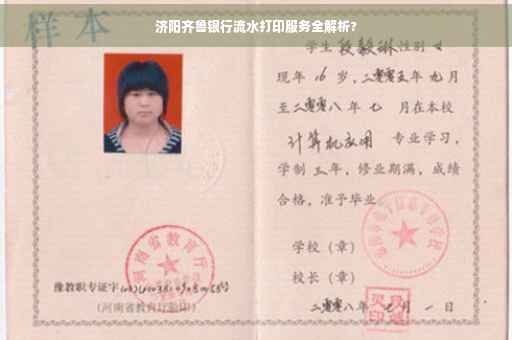 济阳齐鲁银行流水打印服务全解析?
样本
学生段毅琳性别女
现年16岁,二零零五年九月
至二零零八年七月在本校
计算机应用 专业学习,
学制三年,修业期满,成绩
合格,准予毕业
学校(章)
校长(章)
二零零八年七月一日
河南省教育厅
豫教职专证字
(河南省教育厅验印)